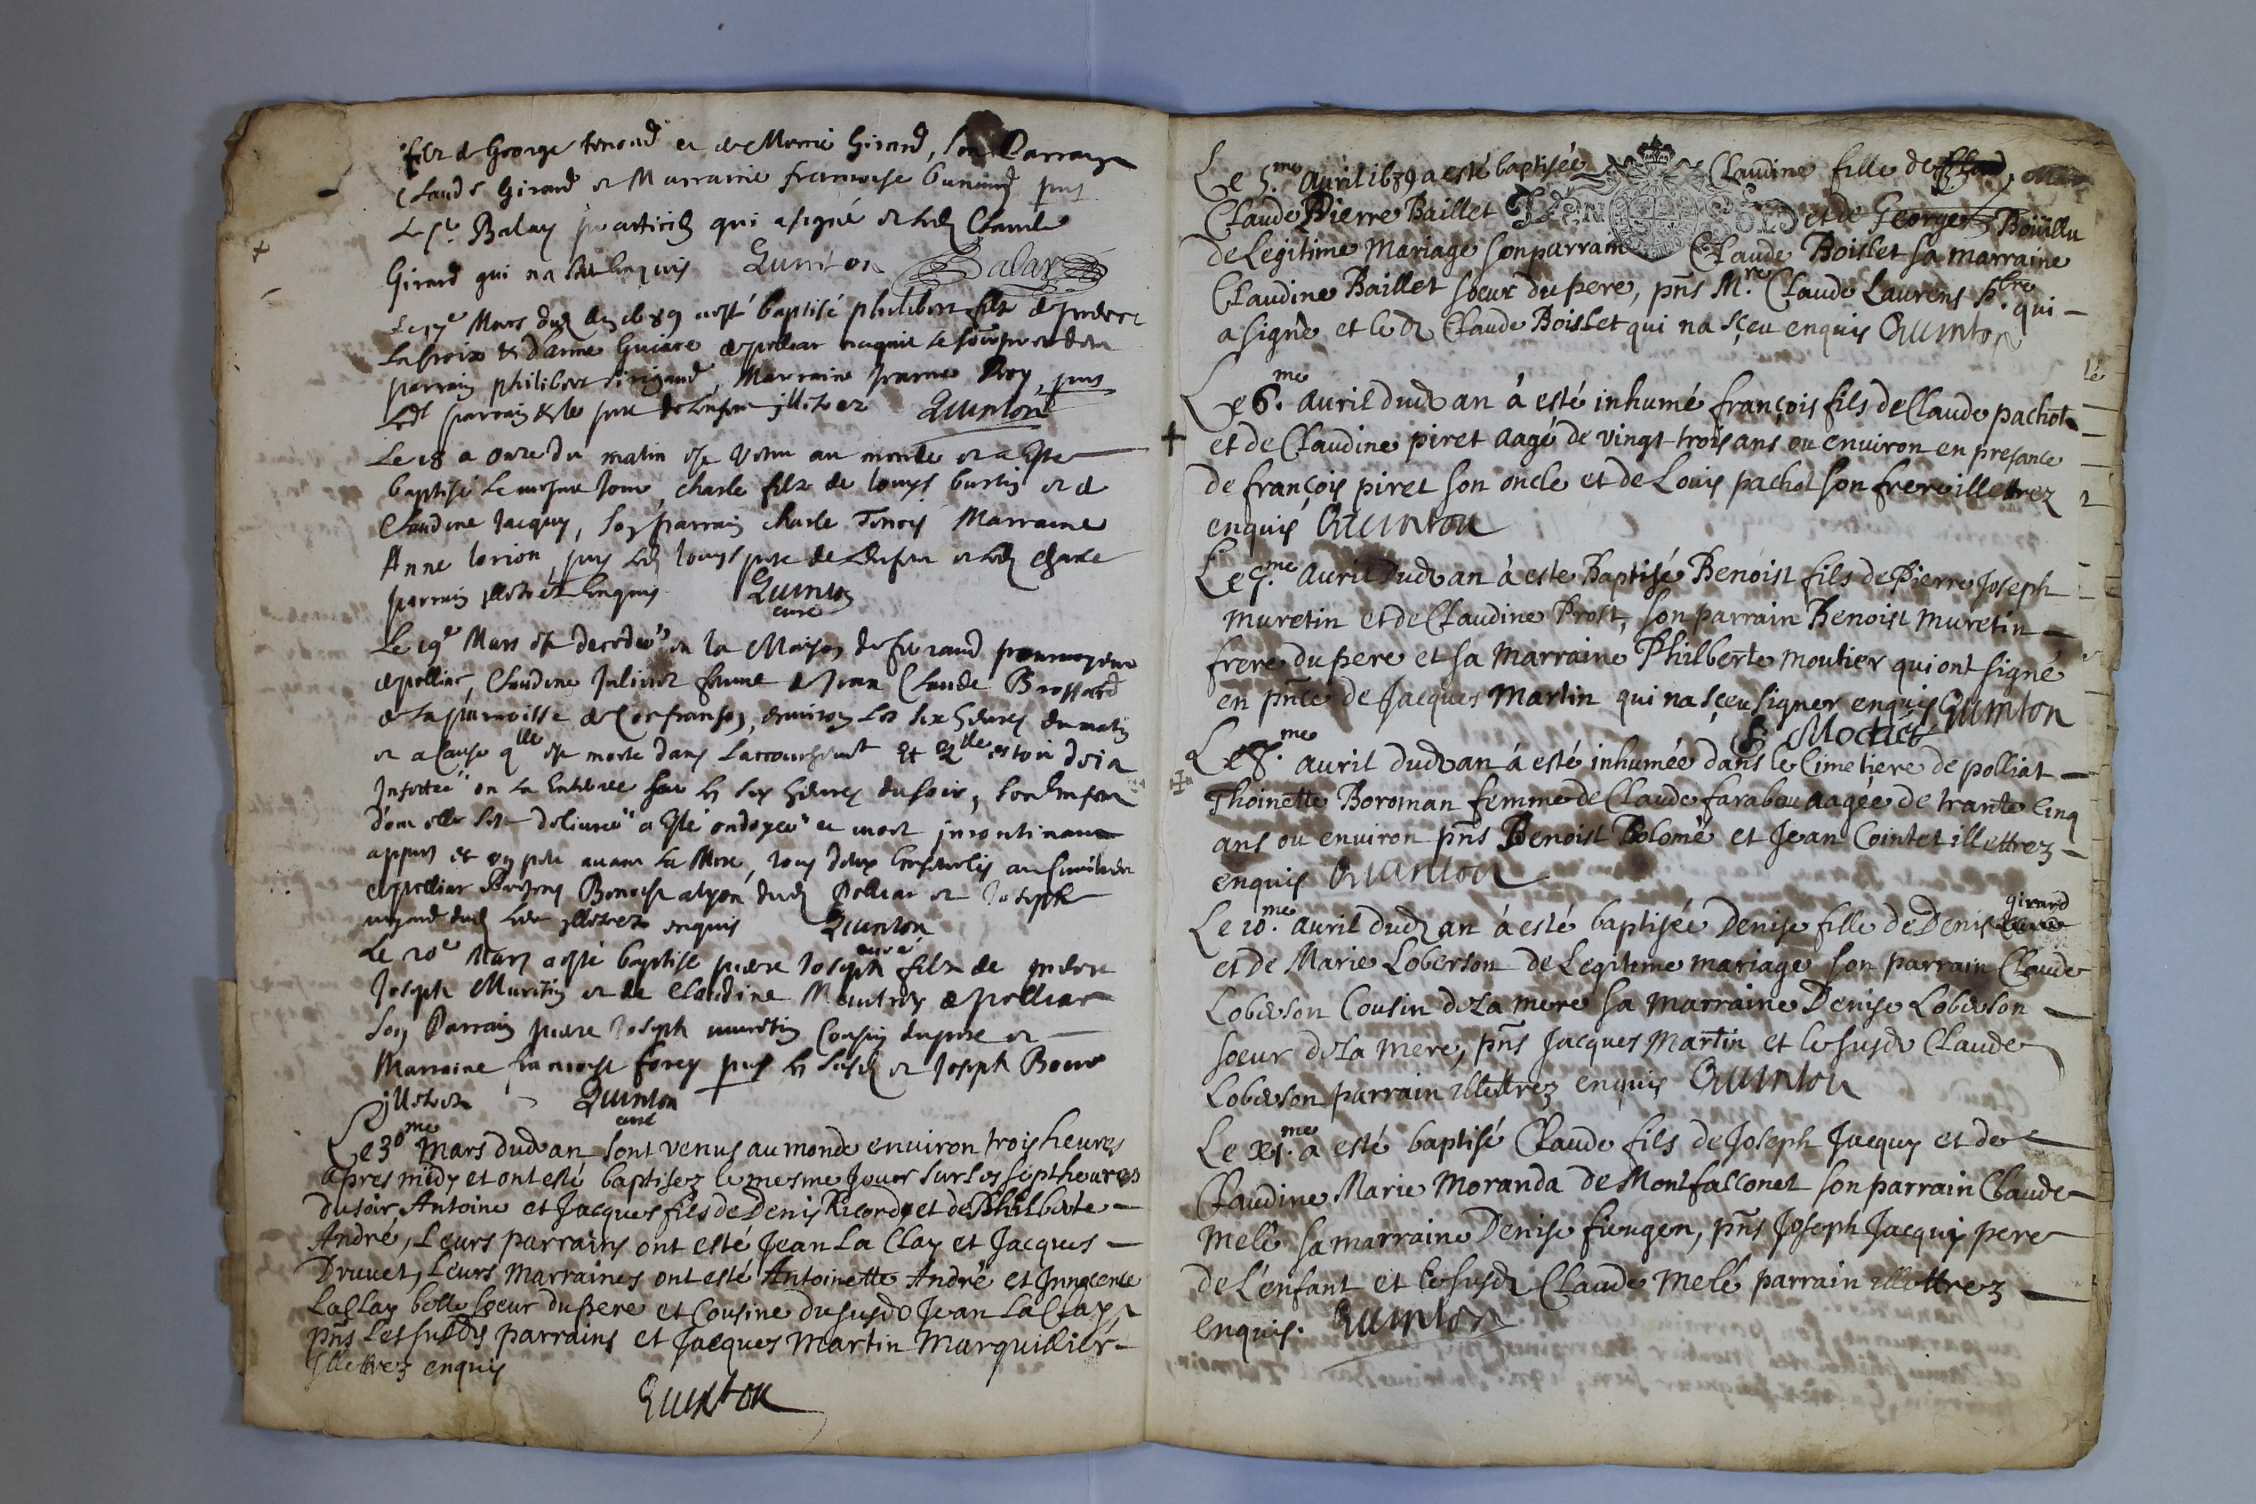 filz de George tenond et de Marie Girard, son Parrain
Claude Girard et Marraine francoise buniund pns
Le Sr Balay practicien qui a signé et led Claude
Girard qui na sceu enquis Quinton Balay
Le 17e Mars dud an 1689 a esté baptisé philibert filz de pierre
Lacroix & d'anne Guiare de polliat
parrain philibert, Marraine Jeanne Roy, pns
Led parrain & le pere de lenfan illitrez Quinton
Le 18 a onze du matin est venu au monde et a este
baptisé le mesme Jour, charle filz de Louys burtin et de
Claudine Jacquy, son parrain charle Tenois Marraine
Anne lorion, pns led Louys pere de lenfan et led charle
parrain illitrez enquis Quinton
curé
Le 19e Mars est decedeé en la Maison de
de polliat, Claudine Julliat femme de Jean Claude Brossard
de la parroisse de Confranson, environ les six heures du matin
et a cause qlle est morte dans laccouchemt Et qlle estoit deia
Infectée on la Enterree sur les six heures du soir, son enfan
dont elle sest delivreé a esté ondoyeé et mort incontinant
apprez et un peu avant la Mere, tous deux ensevelis au simitiere
de polliat presens Benoist alyon dud Polliat et Joseph
dud lieu illitrez enquis Quinton
curé
Le 20e Mars a esté baptisé piere Joseph filz de piere
Joseph Muretin et de Claudine Moutroy de polliat
son Parrain piere Joseph muretin Cousin du pere et
Marraine francoise forey pns les susd et Joseph Bour
illitrez Quinton
curé
Le 30me Mars dud an sont venus au monde environ trois heures
apres midy et ont esté baptisez le mesme Jour sur les sept heures
du soir Antoine et Jacques fils de Denis Ricordy et de Philberte
André, Leurs parrains ont esté Jean La Clay et Jacques
Druuet, Leurs Marraines ont esté Antoinette André et Innocente
LaClay belle soeur du pere et Cousine du susd Jean LaClay
pns les susds parrains et Jacques Martin Marquillier
illettrez enquis
Quinton
Le 5.me Avril 1689 a esté baptisée Claudine fille de
Claude Pierre Baillet et de Georges Boüillu
de Legitime Mariage son parrain Claude Boisset sa marraine
Claudine Baillet soeur du pere, pns M.re Claude Laurens p.bre qui
a signé et le d Claude Boisset qui na sçeu enquis Quinton
Le 6.me Avril dud an à esté inhumé françois fils de Claude pachot
et de Claudine piret aagé de vingt trois ans ou environ en presance
de françois piret son oncle et de Louis pachot son frere illettrez
enquis Quinton
Le 7.me Avril Dud an à esté Baptisé Benoist fils de Pierre Joseph
muretin et de Claudine Prost, son parrain Benoist muretin
frere du pere et sa Marraine Philberte moutier qui ont signé
en pnce de Jacques Martin qui na sçeu signer enquis Quinton
Le 8.me Avril dud an à esté inhumée dans le Cimetiere de polliat
Thoinette Boroman femme de Claude farabou aagée de trante Cinq
ans ou environ pns Benoist Bolomé et Jean Cointet illettrez
enquis Quinton
Le 10.me Avril dud an à esté baptisée Denise fille de Denis girard
et de Marie Loberson de Legitime mariage son parrain Claude
Loberson Cousin de la mere sa marraine Denise Loberson
soeur de la mere, pns Jacques Martin et le susd Claude
Loberson parrain illettrez enquis Quinton
Le xi.me a esté baptisé Claude fils de Joseph Jacquy et de
Claudine Marie Moranda de Montfalconet son parrain Claude
Melé sa marraine Denise fieugen, pns Joseph Jacquy pere
de L'enfant et le susd Claude Melé parrain illettrez
enquis. Quinton